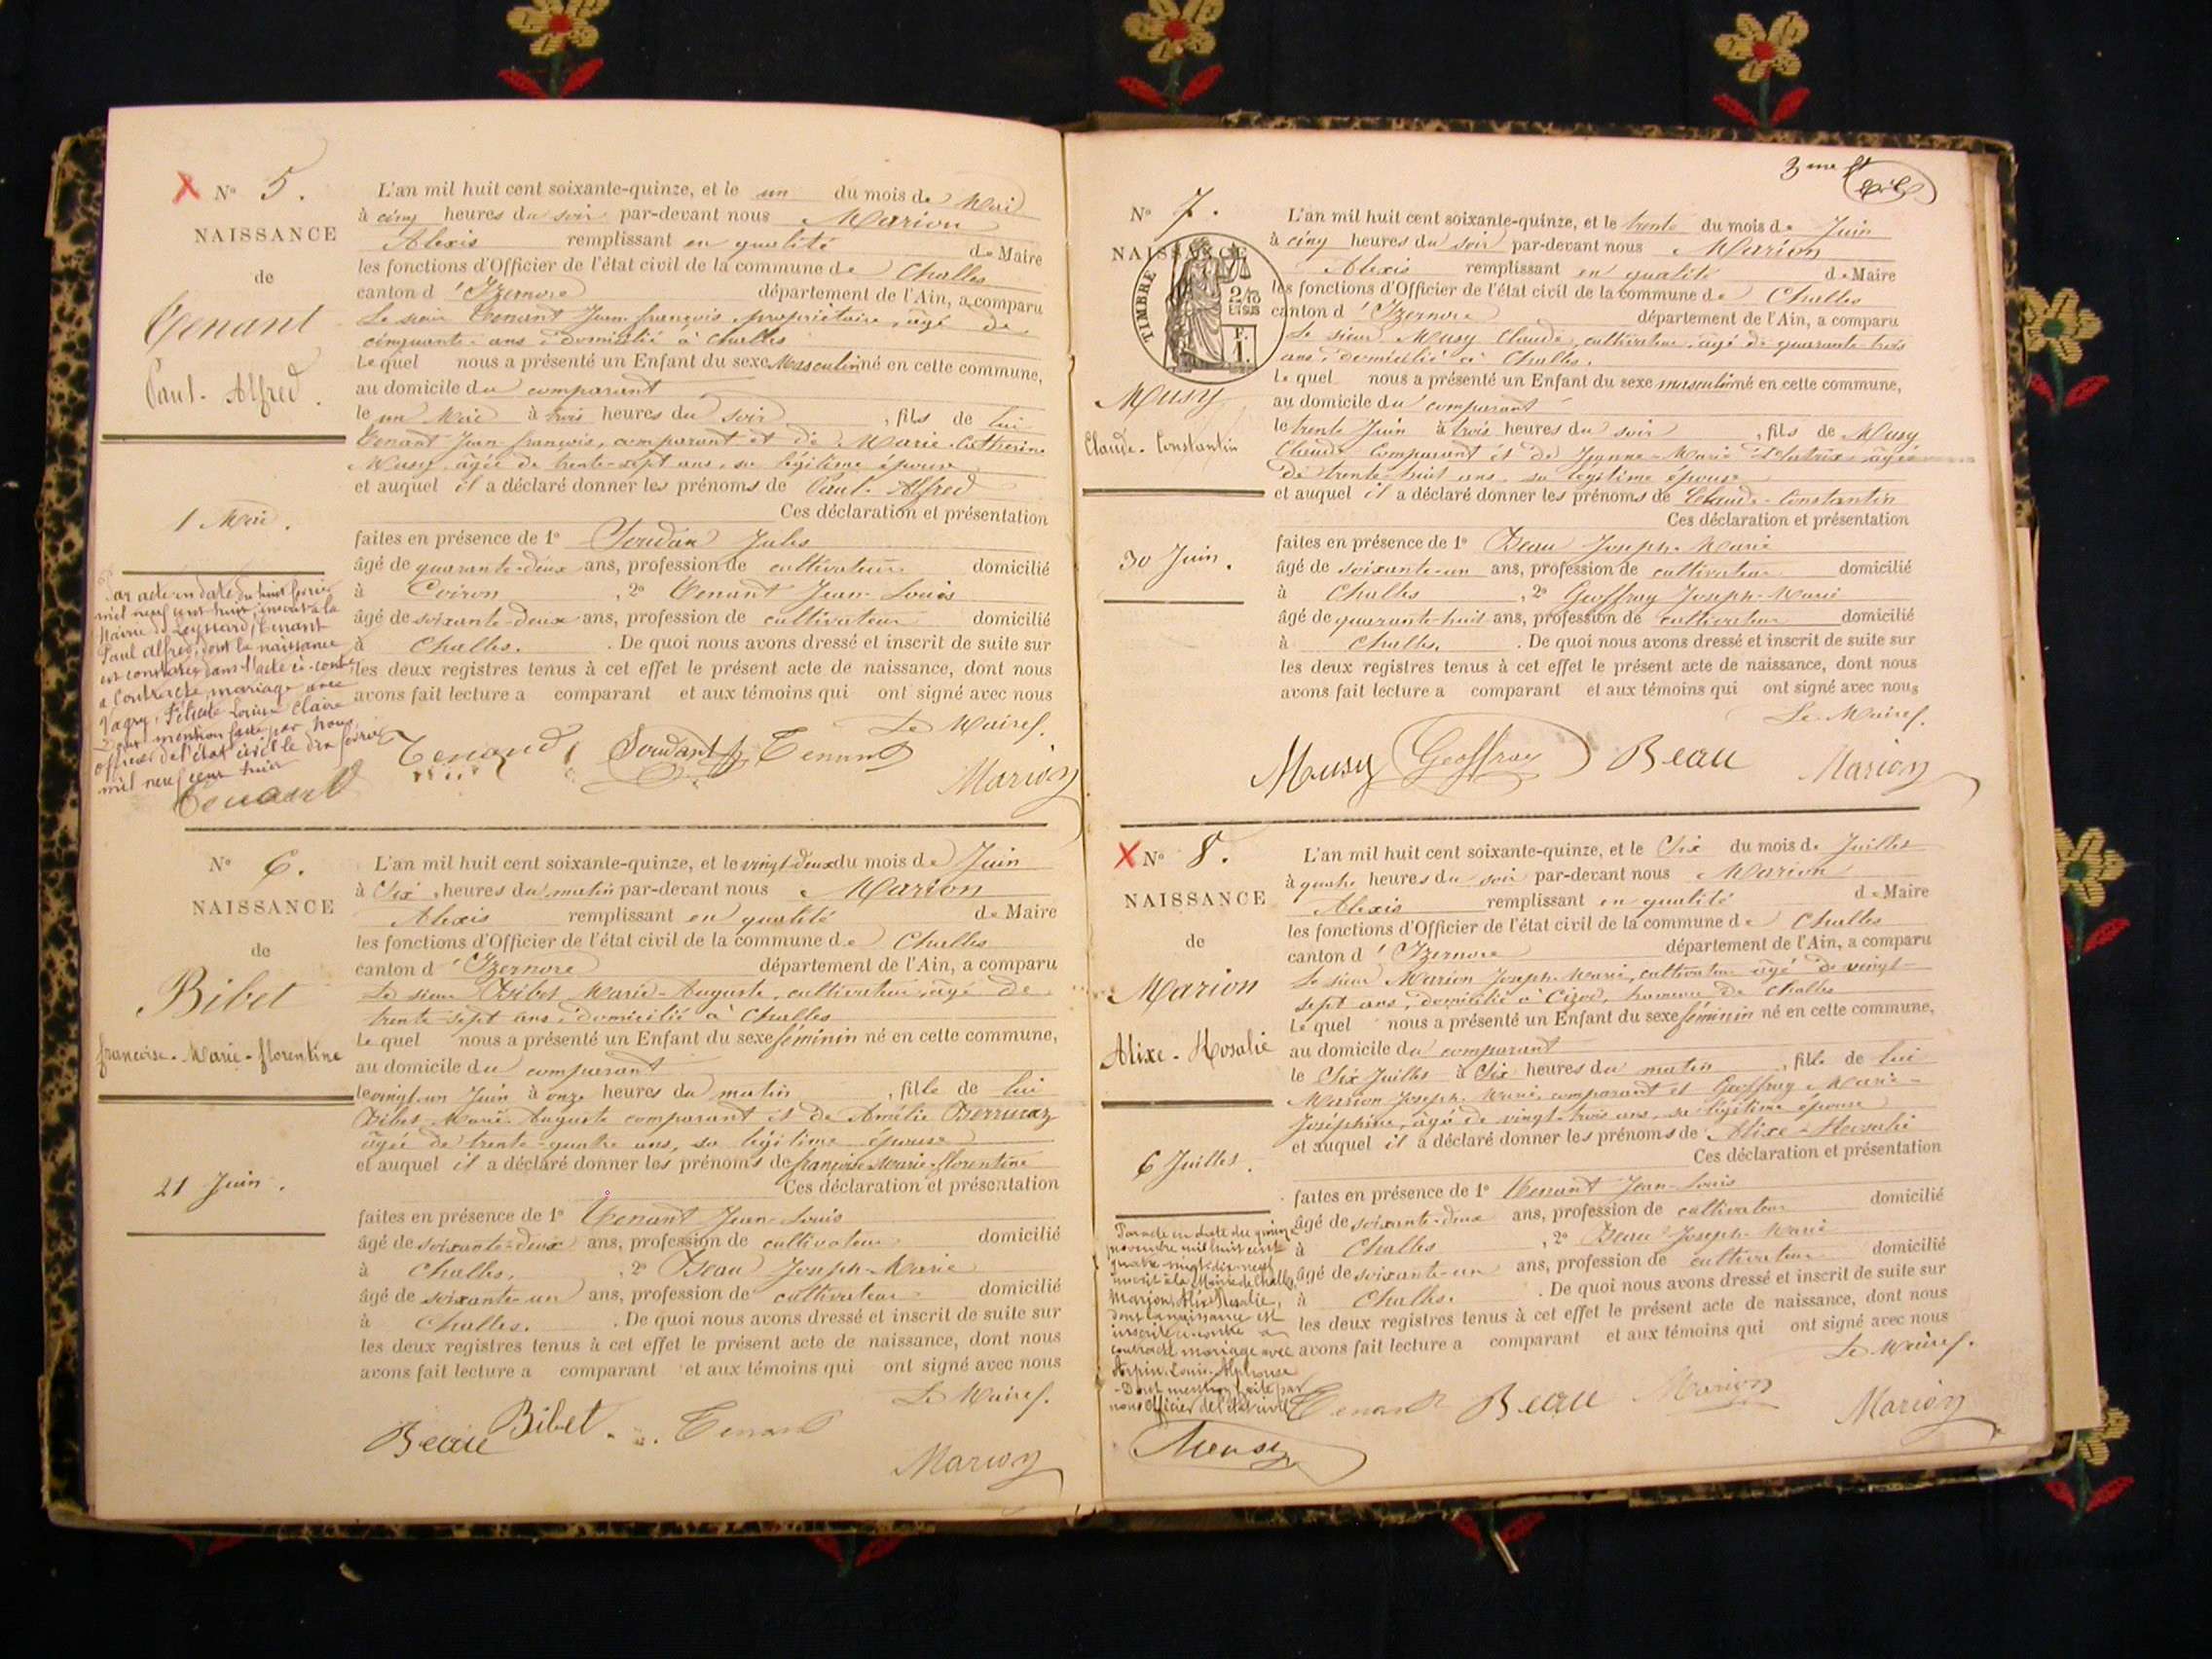 N° 5.
NAISSANCE
de
Tenant
Paul-Alfred.
1 Mai.
Par acte en date du huit février
mil neuf cent huit, inscrit à la
Mairie de Leyssard, Tenant
Paul Alfred, dont la naissance
est constatée dans l'acte ci-contre
a contracté mariage avec
Félicité Louise Claire
Dont mention faite par nous
officier de l'état civil le dix février
mil neuf cent huit
Tenant
L'an mil huit cent soixante-quinze, et le un du mois de Mai
à cinq heures du soir par-devant nous Marion
Alexis remplissant en qualité de Maire
les fonctions d'Officier de l'état civil de la commune de Challes
canton d'Izernore département de l'Ain, a comparu
Le sieur Tenant Jean-françois, propriétaire, âgé de
cinquante ans, domicilié à Challes
Lequel nous a présenté un Enfant du sexe Masculin né en cette commune,
au domicile du comparant
le un Mai à trois heures du soir, fils de lui
Tenant Jean-françois, comparant et de Marie-Catherine
Musy, âgée de trente-sept ans, sa légitime épouse
et auquel il a déclaré donner les prénoms de Paul-Alfred
Ces déclaration et présentation
faites en présence de 1° Soudan Jules
âgé de quarante-deux ans, profession de cultivateur domicilié
à Coiron, 2° Tenant Jean-Louis
âgé de soixante-deux ans, profession de cultivateur domicilié
à Challes. De quoi nous avons dressé et inscrit de suite sur
les deux registres tenus à cet effet le présent acte de naissance, dont nous
avons fait lecture a comparant et aux témoins qui ont signé avec nous
Le Maire.
Tenand Soudant Tenant
Marion
N° 6.
NAISSANCE
de
Bibet
françoise-Marie-florentine
21 Juin.
L'an mil huit cent soixante-quinze, et le vingt-deux du mois de Juin
à Six heures du matin par-devant nous Marion
Alexis remplissant en qualité de Maire
les fonctions d'Officier de l'état civil de la commune de Challes
canton d'Izernore département de l'Ain, a comparu
Le sieur Bibet Marie-Auguste, cultivateur, âgé de
trente sept ans, domicilié à Challes
Lequel nous a présenté un Enfant du sexe féminin né en cette commune,
au domicile du comparant
le vingt-un Juin à onze heures du matin, fille de lui
Bibet Marie-Auguste comparant et de Amélie Berrucaz
âgée de trente-quatre ans, sa légitime épouse
et auquel il a déclaré donner les prénoms de françoise Marie-florentine
Ces déclaration et présentation
faites en présence de 1° Tenant Jean-Louis
âgé de soixante-deux ans, profession de cultivateur domicilié
à Challes, 2° Beau Joseph-Marie
âgé de soixante-un ans, profession de cultivateur domicilié
à Challes. De quoi nous avons dressé et inscrit de suite sur
les deux registres tenus à cet effet le présent acte de naissance, dont nous
avons fait lecture a comparant et aux témoins qui ont signé avec nous
Le Maire.
Beau Bibet Tenant
Marion
3me
N° 7.
NAISSANCE
TIMBRE
2/10
EN SUS
F.
1.
Musy
Claude-Constantin
30 Juin.
L'an mil huit cent soixante-quinze, et le trente du mois de Juin
à cinq heures du soir par-devant nous Marion
Alexis remplissant en qualité de Maire
les fonctions d'Officier de l'état civil de la commune de Challes
canton d'Izernore département de l'Ain, a comparu
Le sieur Musy Claude, cultivateur, âgé de quarante-trois
ans, domicilié à Challes.
Lequel nous a présenté un Enfant du sexe masculin né en cette commune,
au domicile du comparant
le trente Juin à trois heures du soir, fils de Musy
Claude Comparant et de Jeanne-Marie âgée
de trente-huit ans, sa légitime épouse
et auquel il a déclaré donner les prénoms de Claude-Constantin
Ces déclaration et présentation
faites en présence de 1° Beau Joseph-Marie
âgé de soixante-un ans, profession de cultivateur domicilié
à Challes, 2° Geoffray Joseph-Marie
âgé de quarante-huit ans, profession de cultivateur domicilié
à Challes. De quoi nous avons dressé et inscrit de suite sur
les deux registres tenus à cet effet le présent acte de naissance, dont nous
avons fait lecture a comparant et aux témoins qui ont signé avec nous
Le Maire.
Musy Geoffray Beau Marion
N° 8.
NAISSANCE
de
Marion
Alixe-Rosalie
6 Juillet.
Par acte en date du quinze
novembre mil huit cent
quatre-vingt-dix-neuf
inscrit à la Mairie de Challes,
Marion Alix Rosalie,
dont la naissance est
inscrite ci-contre a
contracté mariage avec
Arpin Louis-Alphonse
-Dont mention faite par
nous Officier de l'état civil
Musy
L'an mil huit cent soixante-quinze, et le Six du mois de Juillet
à quatre heures du soir par-devant nous Marion
Alexis remplissant en qualité de Maire
les fonctions d'Officier de l'état civil de la commune de Challes
canton d'Izernore département de l'Ain, a comparu
Le sieur Marion Joseph-Marie, cultivateur âgé de vingt-
sept ans, domicilié à Cizod, hameau de Challes
Lequel nous a présenté un Enfant du sexe féminin né en cette commune,
au domicile du comparant
le Six Juillet à Six heures du matin, fille de lui
Marion Joseph-Marie, comparant et Geoffray Marie-
Joséphine, âgé de vingt-trois ans, sa légitime épouse
et auquel il a déclaré donner les prénoms de Alixe-Rosalie
Ces déclaration et présentation
faites en présence de 1° Tenant Jean-Louis
âgé de soixante-deux ans, profession de cultivateur domicilié
à Challes, 2° Beau Joseph-Marie
âgé de soixante-un ans, profession de cultivateur domicilié
à Challes. De quoi nous avons dressé et inscrit de suite sur
les deux registres tenus à cet effet le présent acte de naissance, dont nous
avons fait lecture a comparant et aux témoins qui ont signé avec nous
Le Maire.
Tenant Beau Marion
Marion